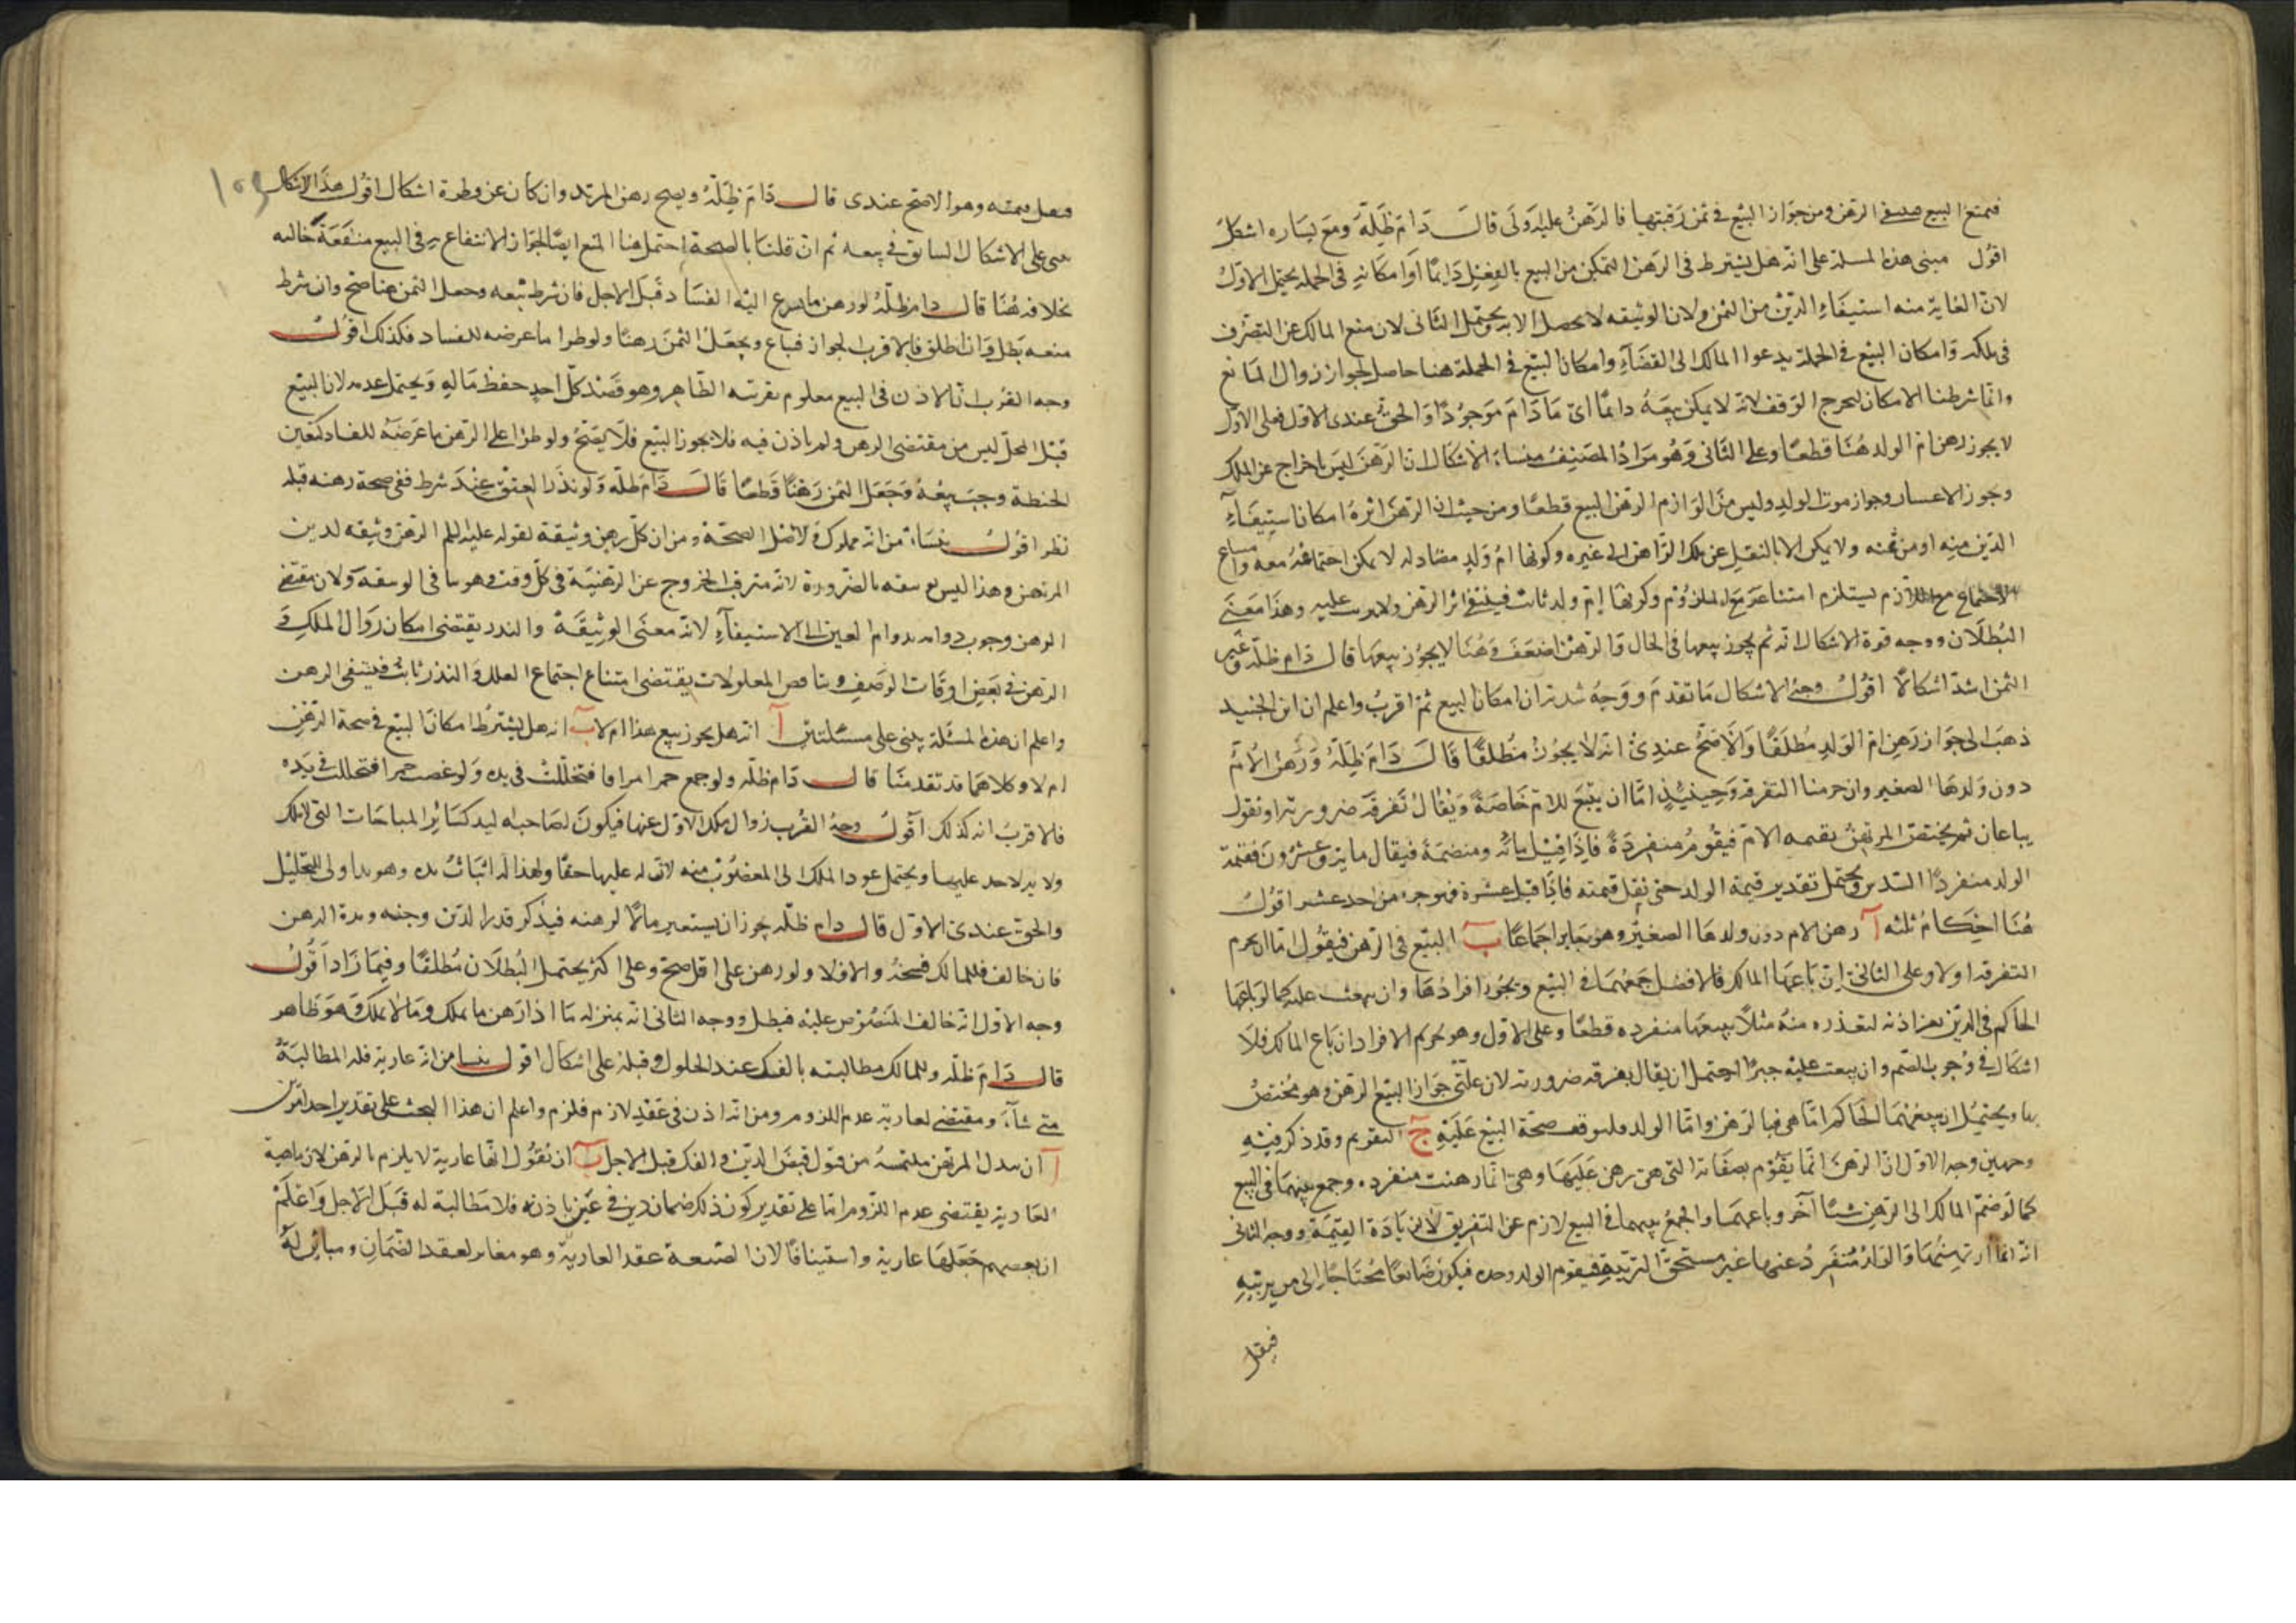 فيمتنع البيع فى الرهن ومن جواز البيع فى ثمن رقبتها فالرهن عليه اولى قال دام ظله ومع يساره اشكل
اقول مبنى هذه المسئلة على انه هل يشترط فى الرهن التمكن من البيع بالفعل دايما او امكانه فى الجملة يحتمل الاول
لان الغاية منه استيفاء الدين من الثمن ولان الوثيقه لا يحصل الا به ويحتمل الثانى لان منع المالك عن التصرف
فى ملكه وامكان البيع فى الجملة يدعوا المالك الى القضاء وامكان البيع فى الجملة هنا حاصل لجواز زوال المانع
وانما شرطنا الامكان ليخرج الوقف لانه لا يمكن بيعه دائما اى ما دام موجودا والحق عندى الاول فعلى الاول
لا يجوز رهن ام الولد هنا قطعا وعلى الثانى وهو مراد المصنف منشاء الاشكال ان الرهن ليس باخراج عن الملك
وجواز الاعسار وجواز موت الولد وليس من لوازم الرهن البيع قطعا ومن حيث ان الرهن اثره امكان استيفاء
الدين منه او من ثمنه ولا يمكن الا بالنقل عن ملك الراهن الى غيره وكونها ام ولد مضاد له لا يمكن اجتماعه معه وامتناع
الاجتماع مع اللازم يستلزم امتناعه مع الملزوم وكونها ام ولد ثابت فينتفى اثر الرهن ولا يترتب عليه وهذا معنى
البطلان ووجه قوة الاشكال انه ثم يجوز بيعها فى الحال فالرهن اضعف وهنا لا يجوز بيعها قال دام ظله وغير
الثمن اشد اشكالا اقول وجه الاشكال ما تقدم ووجه شدته ان امكان البيع ثم اقرب واعلم ان ابن الجنيد
ذهب الى جواز رهن ام الولد مطلقا والاصح عندى انه لا يجوز مطلقا قال دام ظله ورهن الام
دون ولدها الصغير وان حرمنا التفرقة وحينئذ اما ان يبيع الام خاصة ويقال تفرقة ضرورية او نقول
يباعان ثم يختص المرتهن بقيمه الام فيقوم منفردة فاذا قيل مائه ومنضمة فيقال مايه وعشرون فقيمة
الولد منفردا السدس ويحتمل تقدير قيمة الولد حتى تقل قيمته فاذا قيل عشرة فهو جزء من احد عشر اقول
هنا احكام ثلثه آ رهن الام دون ولدها الصغير وهو جايز اجماعا ب البيع فى الرهن فيقول اما ان يحرم
التفرقه اولا وعلى الثانى ان باعها المالك فالافضل جمعهما فى البيع ويجوز افرادها وان بيعت عليه كما لو باعها
الحاكم فى الدين بغير اذنه لتعذره منه مثلا بيعها منفرده قطعا وعلى الاول وهو تحريم الافراد ان باع المالك فلا
اشكال فى وجوب الضم وان بيعت عليه جبرا احتمل ان يقال تفرقه ضرورية لان علتى جواز البيع الرهن وهو مختص
بها ويحتمل ان يبيعهما الحاكم اما هى فبالرهن واما الولد فلتوقف صحة البيع عليه ج التقويم وقد ذكر فيه
وجهين وجه الاول ان الرهن انما يقوم بصفاته التى هى رهن عليها وهى انما رهنت منفرده وجمع بينهما فى البيع
كما لو ضم المالك الى الرهن شيئا آخر وباعهما والجمع بينهما فى البيع لازم عن التفريق لا لزيادة القيمة ووجه الثانى
انه انما ارتهنهما والولد منفرد عنها غير مستحق التربية فيقوم الولد وحده فيكون ضايعا محتاجا الى من يربيه
فيقل
فيقل قيمته وهو الاصح عندى قال دام ظله ويصح رهن المرتد وان كان عن فطرة اشكال اقول هذا الاشكال
مبنى على الاشكال السابق فى بيعه ثم ان قلنا بالصحة احتمل هنا المنع ايضا لجواز الانتفاع به فى البيع منفعة حاليه
بخلافه هنا قال دام ظله لو رهن ما يسرع اليه الفساد قبل الاجل فان شرط بيعه وجعل الثمن رهنا صح وان شرط
منعه بطل وان اطلق فالاقرب الجواز فيباع ويجعل الثمن رهنا ولو طرا ما عرضه للفساد فكذلك اقول
وجه القرب ان الاذن فى البيع معلوم بقرينه الظاهر وهو قصد كل احد حفظ ماله ويحتمل عدمه لان البيع
قبل المحل ليس من مقتضى الرهن ولم ياذن فيه فلا يجوز البيع فلا يصح ولو طرا على الرهن ما عرضه للفساد كتعفين
الحنطة وجب بيعه وجعل الثمن رهنا قطعا قال دام ظله ولو نذر العتق عند شرط ففى صحة رهنه قبله
نظر اقول ينشاء من انه مملوك والاصل الصحة ومن ان كل رهن وثيقة لقوله عليه السلم الرهن وثيقه لدين
المرتهن وهذا ليس بوثيقه بالضرورة لانه مترقب الخروج عن الرهنية فى كل وقت وهو ينافى الوثيقه ولان مقتضى
الرهن وجوب دوامه بدوام العين الى الاستيفاء لانه معنى الوثيقة والنذر يقتضى امكان زوال الملك و
الرهن فى بعض اوقات الوصف وتناقض المعلولات يقتضى امتناع اجتماع العلل والنذر ثابت فينتفى الرهن
واعلم ان هذه المسئلة يبنى على مسئلتين آ انه هل يجوز بيع هذا ام لا ب انه هل يشترط امكان البيع فى صحة الرهن
ام لا وكلاهما قد تقدمنا قال دام ظله ولو جمع خمرا مراقا فتخللت فى يده ولو غصب خمرا فتخللت فى يده
فلاقرب انه كذلك اقول وجه القرب زوال ملك الاول عنها فيكون لصاحب اليد كسائر المباحات التى لا ملك
ولا يد لاحد عليها ويحتمل عود الملك الى المغصوب منه لان له عليها حقا ولهذا له اثبات يده وهو بدا ولى للتخليل
والحق عندى الاول قال دام ظله يجوز ان يستعير مالا لرهنه فيذكر قدر الدين وجنسه ومدة الرهن
فان خالف فللمالك فسخه والا فلا ولو رهن على اقل صح وعلى اكثر يحتمل البطلان مطلقا وفيما زاد اقول
وجه الاول انه خالف المنصوص عليه فبطل ووجه الثانى انه بمنزله ما اذا رهن ما يملك وما لا يملك وهو ظاهر
قال دام ظله وللمالك مطالبته بالفك عند الحلول وقبله على اشكال اقول ينشا من انه عارية فله المطالبة
متى شاء ومقتضى العارية عدم اللزوم ومن انه اذن فى عقد لازم فلزم واعلم ان هذا البحث على تقدير احد امرين
آ ان يبذل المرتهن ملتمسه من قبول قبض الدين والفك قبل الاجل ب ان نقول انها عارية لا يلزم بالرهن لان ماهية
العارية يقتضى عدم اللزوم اما على تقدير كون ذلك ضمان دين فى عين باذنه فلا مطالبة له قبل الاجل واعلم
ان بعضهم جعلها عارية واستينافا لان الصيغة عقد العارية وهو مغاير لعقد الضمان ومباين له